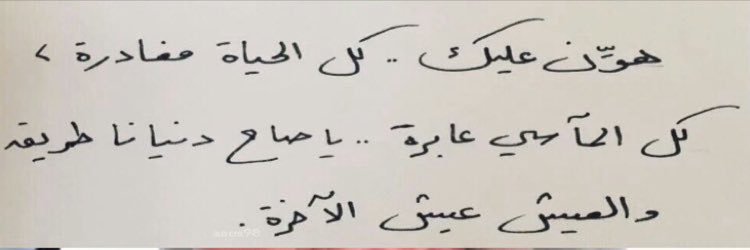 هوّن عليك .. كل الحياة مغادرة ،
كل المآسي عابرة .. يا صاح دنيانا طريق
والعيش عيش الآخرة .
anos98